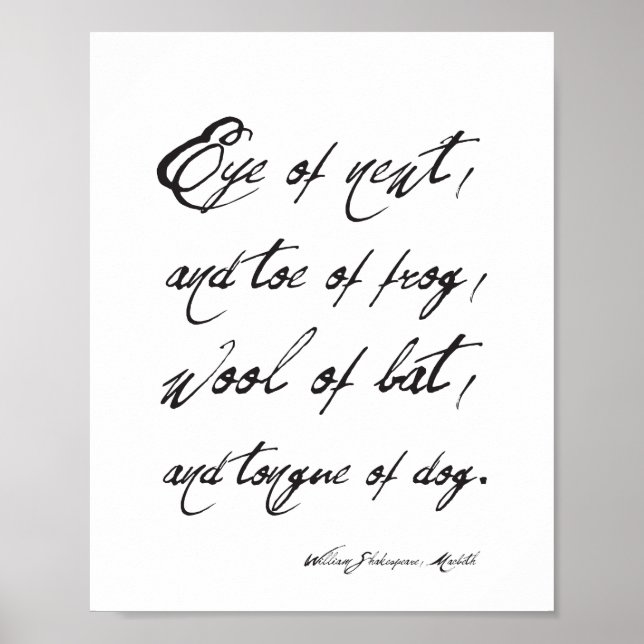 Eye of newt,
and toe of frog,
Wool of bat,
and tongue of dog.
William Shakespeare, Macbeth